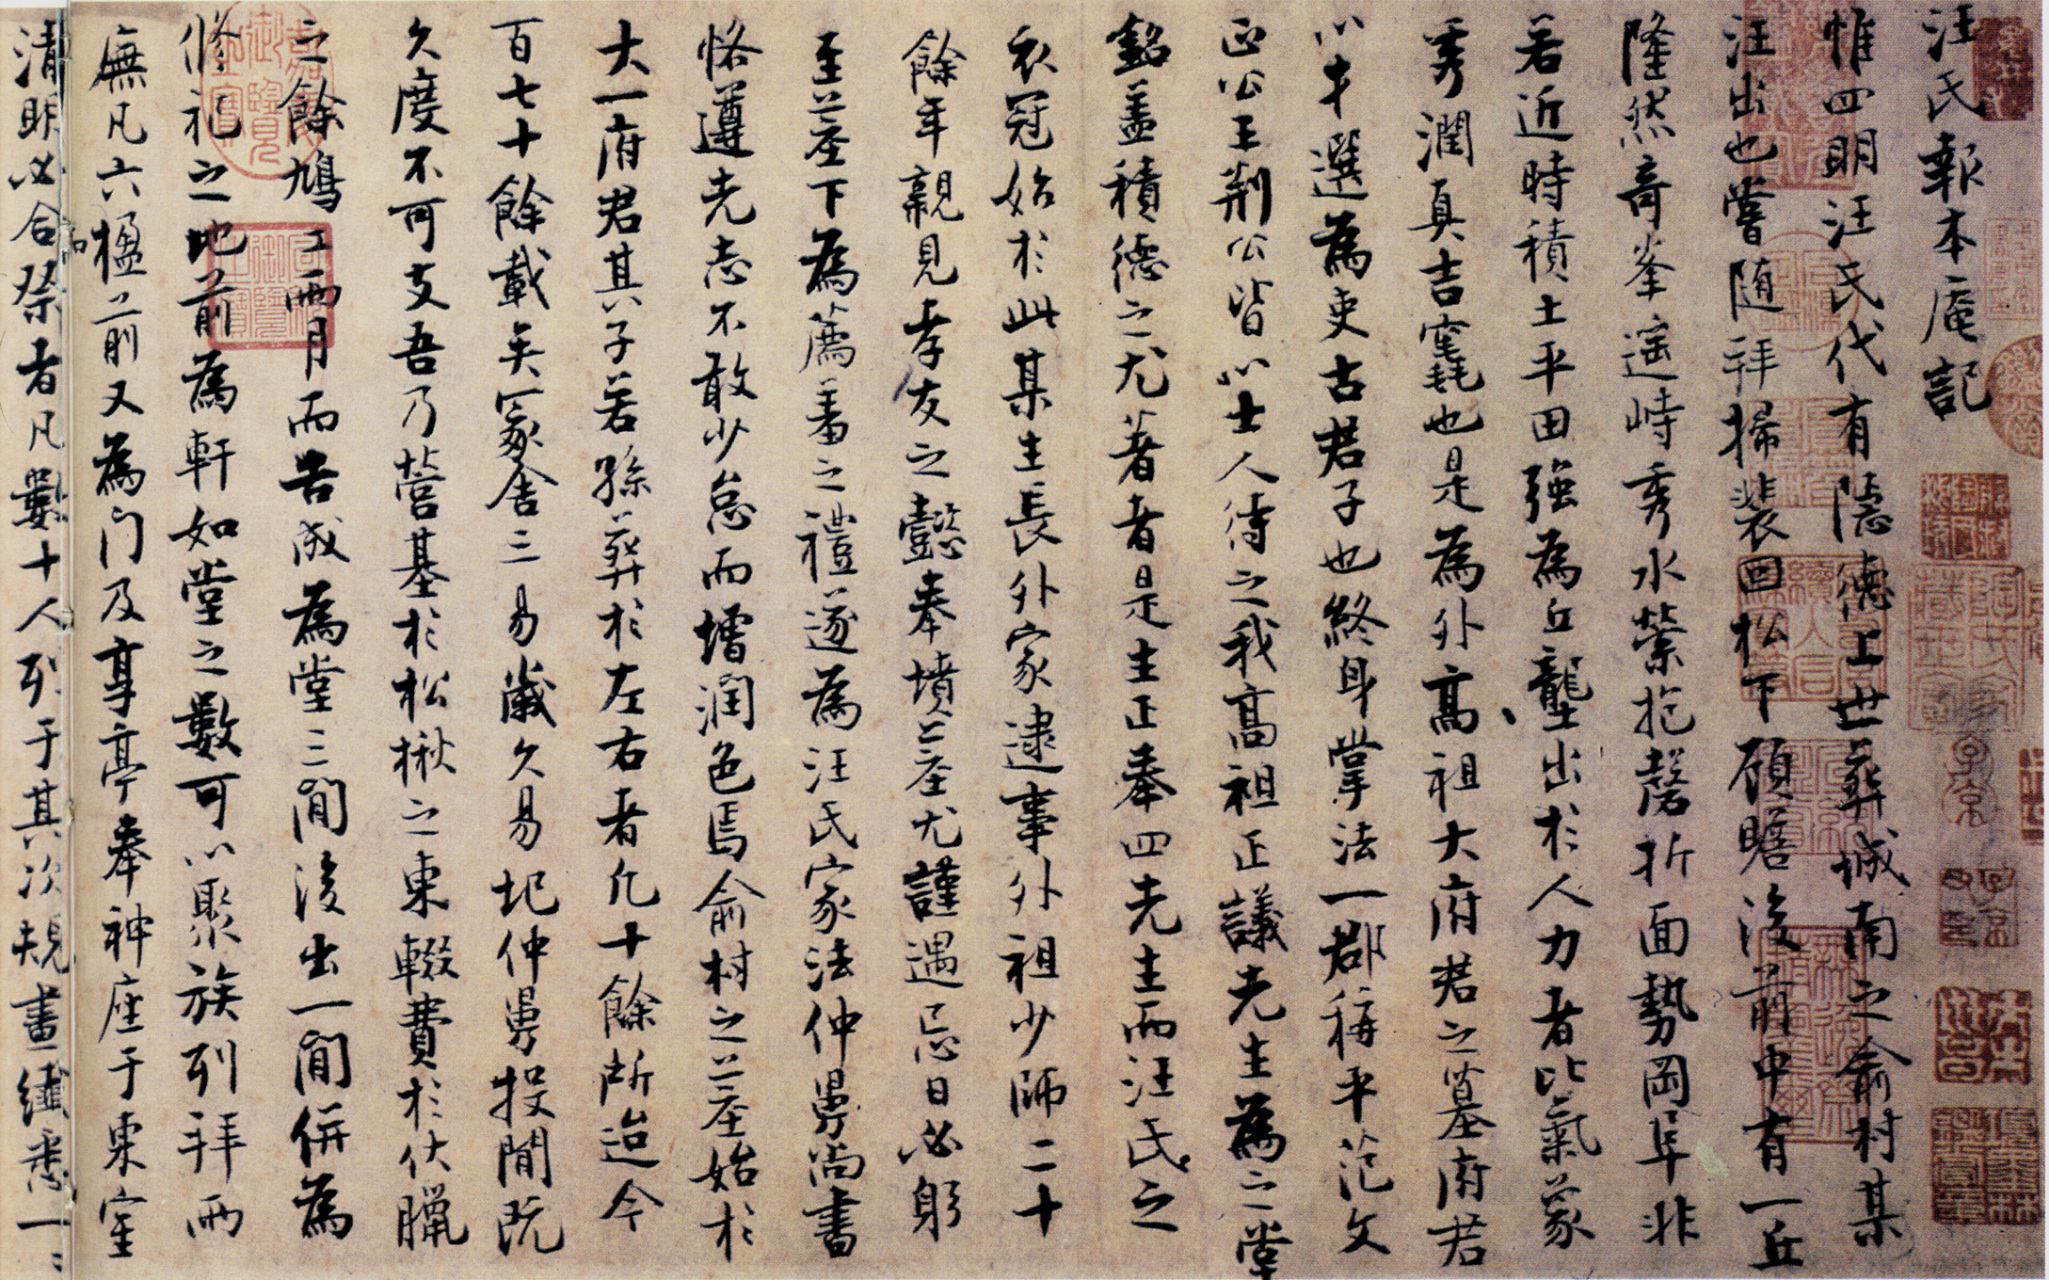 汪氏報本庵記
惟四明汪氏代有隱德上世葬城南之俞村某
汪出也嘗随拜掃裴回松下顧瞻後前中有一丘
隆然奇峯遥峙秀水縈抱磬折面勢岡阜非
若近時積土平田強為丘壟出於人力者比氣蒙
秀潤真吉竁也是為外高祖大府君之墓府君
以才選為吏古君子也終身掌法一郡稱平范文
正公王荆公皆以士人待之我高祖正議先生為之堂
銘盖積德之尤著者是生正奉四先生而汪氏之
衣冠始於此某生長外家逮事外祖少師二十
餘年親見孝友之懿奉墳墓尤謹遇忌日必躬
至墓下為薦羞之禮遂為汪氏家法仲舅尚書
恪遵先志不敢少怠而增润色焉俞村之墓始於
大一府君其子若孫葬於左右者凢十餘所迨今
百七十餘載矣冢舍三易歲久易圮仲舅投閒既
久度不可支吾乃營基於松楸之東輟費於伏臘
之餘鳩工兩月而告成為堂三間後出一間併為
修祀之地前為軒如堂之數可以聚族列拜兩
廡凡六楹前又為门及享亭奉神座于東室
清明必合祭者凡數十人列于其次規畫纖悉一一